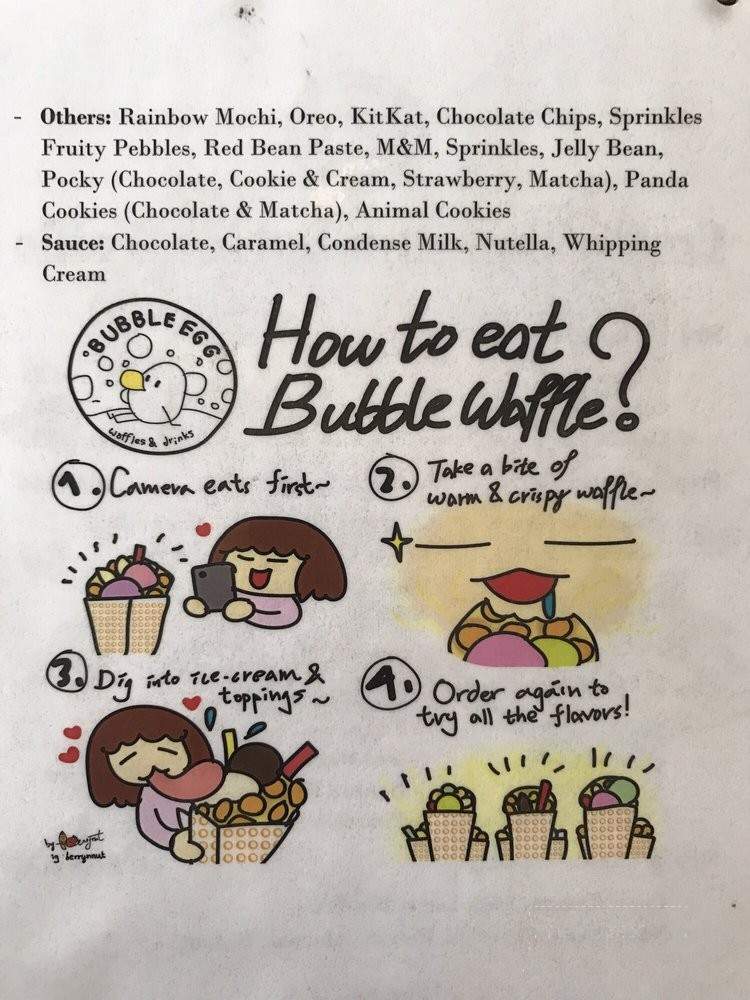 - Others: Rainbow Mochi, Oreo, KitKat, Chocolate Chips, Sprinkles
Fruity Pebbles, Red Bean Paste, M&M, Sprinkles, Jelly Bean,
Pocky (Chocolate, Cookie & Cream, Strawberry, Matcha), Panda
Cookies (Chocolate & Matcha), Animal Cookies
- Sauce: Chocolate, Caramel, Condense Milk, Nutella, Whipping
Cream
BUBBLE EGG
waffles & drinks
How to eat
Bubble Waffle?
1. Camera eats first~
2. Take a bite of
warm & crispy waffle~
3. Dig into ice-cream &
toppings~
4. Order again to
try all the flavors!
by
ig berrynnut